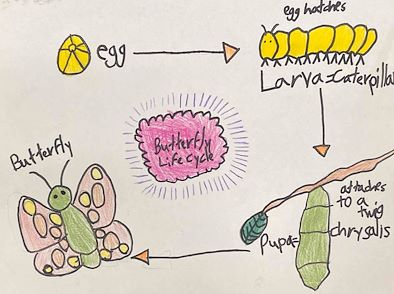 egg
egg hatches
Larva=Caterpilla
Butterfly
Life Cycle
Butterfly
attaches
to a
twig
Pupa=
chrysalis